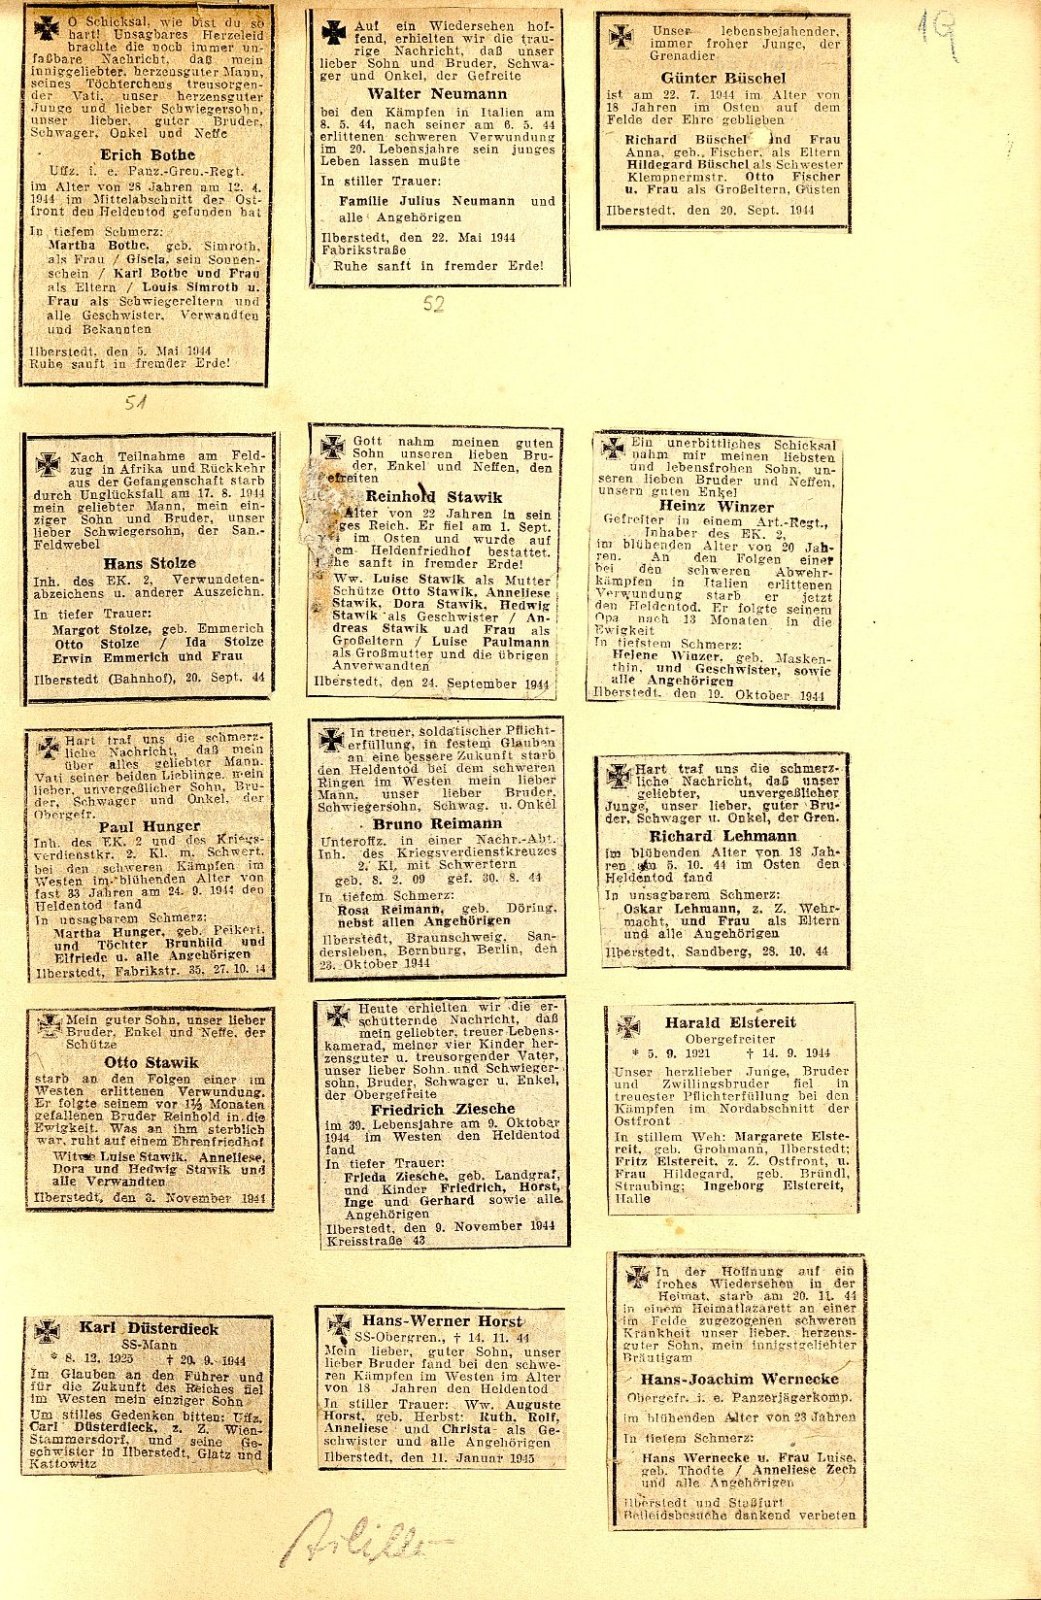 19
O Schicksal, wie bist du so
hart! Unsagbares Herzeleid
brachte die noch immer un-
faßbare Nachricht, daß mein
inniggeliebter, herzensguter Mann,
seines Töchterchens treusorgen-
der Vati, unser herzensguter
Junge und lieber Schwiegersohn,
unser lieber, guter Bruder,
Schwager, Onkel und Neffe
Erich Bothe
Uffz. i. e. Panz.-Gren.-Regt.
im Alter von 28 Jahren am 12. 4.
1944 im Mittelabschnitt der Ost-
front den Heldentod gefunden hat
In tiefem Schmerz:
Martha Bothe, geb. Simroth,
als Frau / Gisela, sein Sonnen-
schein / Karl Bothe und Frau
als Eltern / Louis Simroth u.
Frau als Schwiegereltern und
alle Geschwister, Verwandten
und Bekannten
Ilberstedt, den 5. Mai 1944
Ruhe sanft in fremder Erde!
51
Auf ein Wiedersehen hof-
fend, erhielten wir die trau-
rige Nachricht, daß unser
lieber Sohn und Bruder, Schwa-
ger und Onkel, der Gefreite
Walter Neumann
bei den Kämpfen in Italien am
8. 5. 44, nach seiner am 6. 5. 44
erlittenen schweren Verwundung
im 20. Lebensjahre sein junges
Leben lassen mußte
In stiller Trauer:
Familie Julius Neumann und
alle Angehörigen
Ilberstedt, den 22. Mai 1944
Fabrikstraße
Ruhe sanft in fremder Erde!
52
Unser lebensbejahender,
immer froher Junge, der
Grenadier
Günter Büschel
ist am 22. 7. 1944 im Alter von
18 Jahren im Osten auf dem
Felde der Ehre geblieben
Richard Büschel und Frau
Anna, geb. Fischer, als Eltern
Hildegard Büschel als Schwester
Klempnermstr. Otto Fischer
u. Frau als Großeltern, Güsten
Ilberstedt, den 20. Sept. 1944
Nach Teilnahme am Feld-
zug in Afrika und Rückkehr
aus der Gefangenschaft starb
durch Unglücksfall am 17. 8. 1944
mein geliebter Mann, mein ein-
ziger Sohn und Bruder, unser
lieber Schwiegersohn, der San.-
Feldwebel
Hans Stolze
Inh. des EK. 2, Verwundeten-
abzeichens u. anderer Auszeichn.
In tiefer Trauer:
Margot Stolze, geb. Emmerich
Otto Stolze / Ida Stolze
Erwin Emmerich und Frau
Ilberstedt (Bahnhof), 20. Sept. 44
Gott nahm meinen guten
Sohn unseren lieben Bru-
der, Enkel und Neffen, den
efreiten
Reinhold Stawik
Alter von 22 Jahren in sein
ges Reich. Er fiel am 1. Sept.
im Osten und wurde auf
em Heldenfriedhof bestattet.
he sanft in fremder Erde!
Ww. Luise Stawik als Mutter
Schütze Otto Stawik, Anneliese
Stawik, Dora Stawik, Hedwig
Stawik als Geschwister / An-
dreas Stawik und Frau als
Großeltern / Luise Paulmann
als Großmutter und die übrigen
Anverwandten
Ilberstedt, den 24. September 1944
Ein unerbittliches Schicksal
nahm mir meinen liebsten
und lebensfrohen Sohn, un-
seren lieben Bruder und Neffen,
unsern guten Enkel
Heinz Winzer
Gefreiter in einem Art.-Regt.,
Inhaber des EK. 2,
im blühenden Alter von 20 Jah-
ren. An den Folgen einer
bei den schweren Abwehr-
kämpfen in Italien erlittenen
Verwundung starb er jetzt
den Heldentod. Er folgte seinem
Opa nach 13 Monaten in die
Ewigkeit
In tiefstem Schmerz:
Helene Winzer, geb. Masken-
thin, und Geschwister, sowie
alle Angehörigen
Ilberstedt, den 19. Oktober 1944
Hart traf uns die schmerz-
liche Nachricht, daß mein
über alles geliebter Mann,
Vati seiner beiden Lieblinge, mein
lieber, unvergeßlicher Sohn, Bru-
der, Schwager und Onkel, der
Obergefr.
Paul Hunger
Inh. des EK. 2 und des Kriegs-
verdienstkr. 2. Kl. m. Schwert.
bei den schweren Kämpfen im
Westen im blühenden Alter von
fast 33 Jahren am 24. 9. 1944 den
Heldentod fand
In unsagbarem Schmerz:
Martha Hunger, geb. Peikert,
und Töchter Brunhild und
Elfriede u. alle Angehörigen
Ilberstedt, Fabrikstr. 35, 27. 10. 44
In treuer, soldatischer Pflicht-
erfüllung, in festem Glauben
an eine bessere Zukunft starb
den Heldentod bei dem schweren
Ringen im Westen mein lieber
Mann, unser lieber Bruder,
Schwiegersohn, Schwag. u. Onkel
Bruno Reimann
Unteroffz. in einer Nachr.-Abt.
Inh. des Kriegsverdienstkreuzes
2. Kl. mit Schwertern
geb. 8. 2. 09 gef. 30. 8. 44
In tiefem Schmerz:
Rosa Reimann, geb. Döring,
nebst allen Angehörigen
Ilberstedt, Braunschweig, San-
dersleben, Bernburg, Berlin, den
23. Oktober 1944
Hart traf uns die schmerz-
liche Nachricht, daß unser
geliebter, unvergeßlicher
Junge, unser lieber, guter Bru-
der, Schwager u. Onkel, der Gren.
Richard Lehmann
im blühenden Alter von 18 Jah-
ren am 5. 10. 44 im Osten den
Heldentod fand
In unsagbarem Schmerz:
Oskar Lehmann, z. Z. Wehr-
macht, und Frau als Eltern
und alle Angehörigen
Ilberstedt, Sandberg, 28. 10. 44
Mein guter Sohn, unser lieber
Bruder, Enkel und Neffe, der
Schütze
Otto Stawik
starb an den Folgen einer im
Westen erlittenen Verwundung.
Er folgte seinem vor 1½ Monaten
gefallenen Bruder Reinhold in die
Ewigkeit. Was an ihm sterblich
war, ruht auf einem Ehrenfriedhof
Witwe Luise Stawik, Anneliese,
Dora und Hedwig Stawik und
alle Verwandten
Ilberstedt, den 3. November 1944
Heute erhielten wir die er-
schütternde Nachricht, daß
mein geliebter, treuer Lebens-
kamerad, meiner vier Kinder her-
zensguter u. treusorgender Vater,
unser lieber Sohn und Schwieger-
sohn, Bruder, Schwager u. Enkel,
der Obergefreite
Friedrich Ziesche
im 39. Lebensjahre am 9. Oktober
1944 im Westen den Heldentod
fand
In tiefer Trauer:
Frieda Ziesche, geb. Landgraf,
und Kinder Friedrich, Horst,
Inge und Gerhard sowie alle
Angehörigen
Ilberstedt, den 9. November 1944
Kreisstraße 43
Harald Elstereit
Obergefreiter
* 5. 9. 1921 † 14. 9. 1944
Unser herzlieber Junge, Bruder
und Zwillingsbruder fiel in
treuester Pflichterfüllung bei den
Kämpfen im Nordabschnitt der
Ostfront
In stillem Weh: Margarete Elste-
reit, geb. Grohmann, Ilberstedt;
Fritz Elstereit, z. Z. Ostfront, u.
Frau Hildegard, geb. Bründl,
Straubing; Ingeborg Elstereit,
Halle
Karl Düsterdieck
SS-Mann
* 8. 12. 1925 † 20. 9. 1944
Im Glauben an den Führer und
für die Zukunft des Reiches fiel
im Westen mein einziger Sohn
Um stilles Gedenken bitten: Uffz.
Carl Düsterdieck, z. Z. Wien-
Stammersdorf, und seine Ge-
schwister in Ilberstedt, Glatz und
Kattowitz
Hans-Werner Horst
SS-Obergren., † 14. 11. 44
Mein lieber, guter Sohn, unser
lieber Bruder fand bei den schwe-
ren Kämpfen im Westen im Alter
von 18 Jahren den Heldentod
In stiller Trauer: Ww. Auguste
Horst, geb. Herbst; Ruth, Rolf,
Anneliese und Christa als Ge-
schwister und alle Angehörigen
Ilberstedt, den 11. Januar 1945
In der Hoffnung auf ein
frohes Wiedersehen in der
Heimat, starb am 20. 11. 44
in einem Heimatlazarett an einer
im Felde zugezogenen schweren
Krankheit unser lieber, herzens-
guter Sohn, mein innigstgeliebter
Bräutigam
Hans-Joachim Wernecke
Obergefr. i. e. Panzerjägerkomp.
im blühenden Alter von 23 Jahren
In tiefem Schmerz:
Hans Wernecke u. Frau Luise,
geb. Thodte / Anneliese Zech
und alle Angehörigen
Ilberstedt und Staßfurt
Beileidsbesuche dankend verbeten